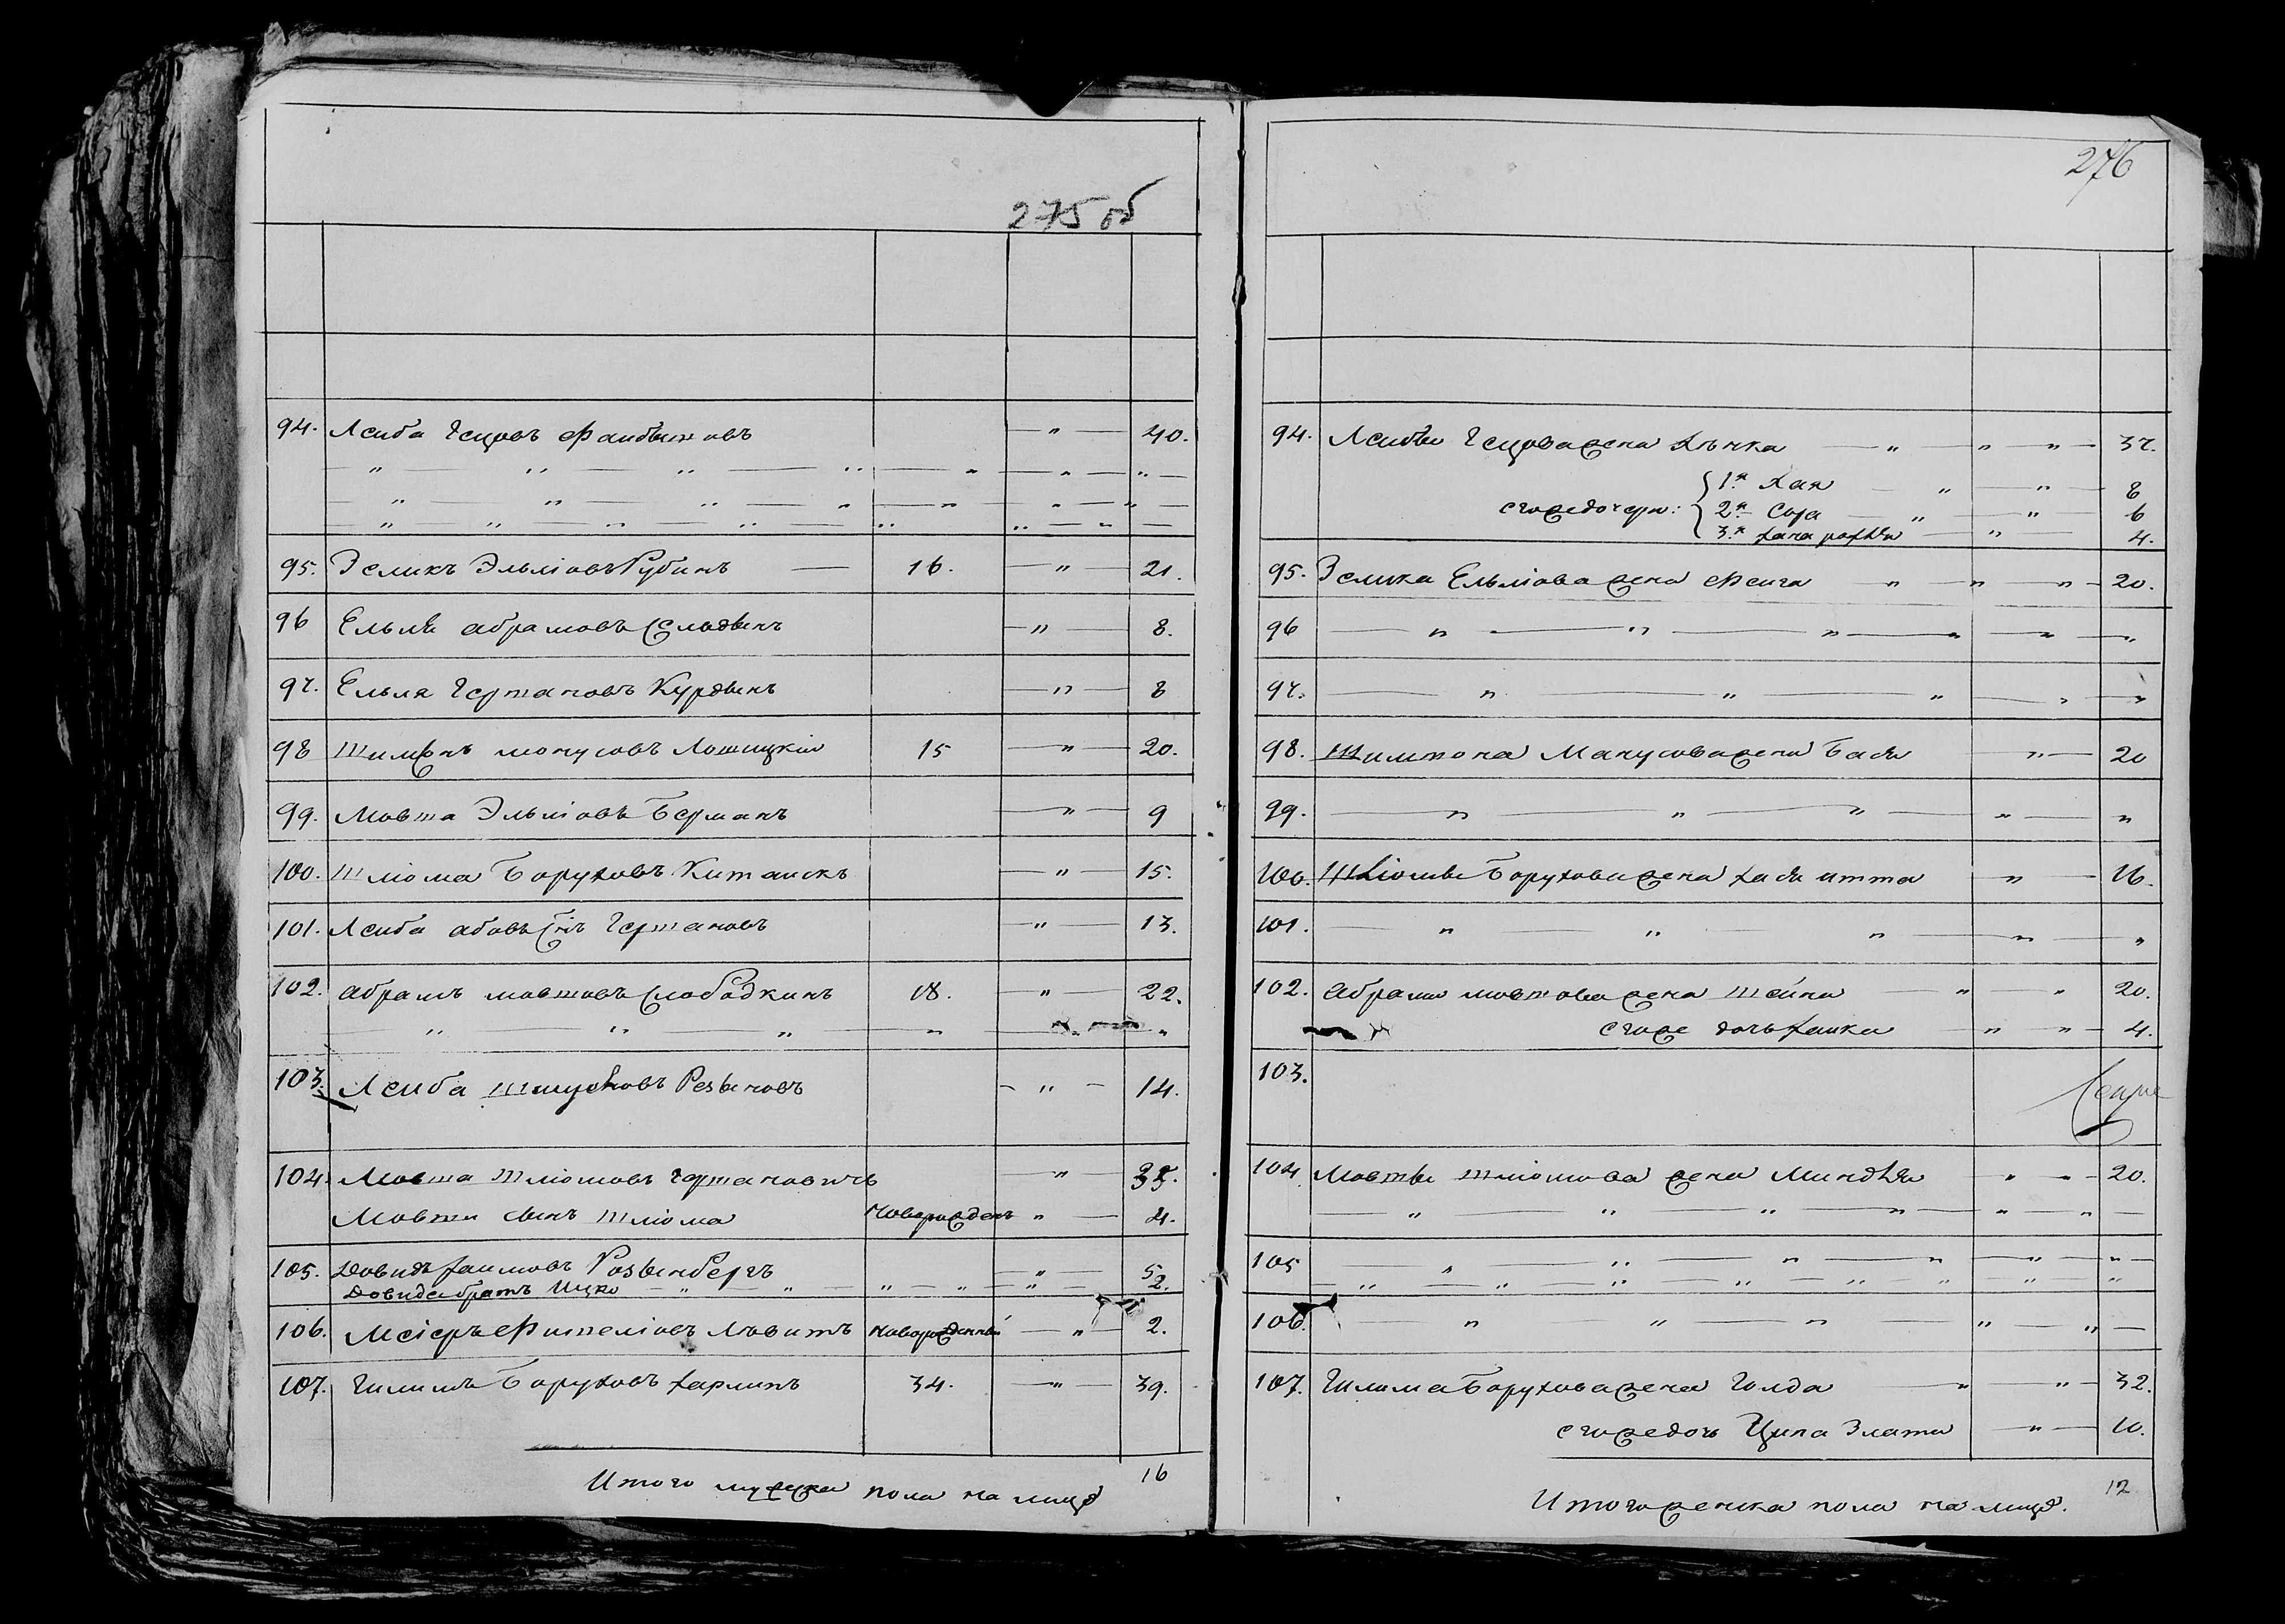 275 об
94. Лейба Гецовъ Файбышовъ — " — 40.
95. Зеликъ Эльіовъ Рубинъ — 16. — " — 21.
96 Ельля абрамовъ — " — 8.
97. Ельля Гершановъ Курдынъ — " — 8
98 Шимонъ монусовъ Лошицкій 15 — " — 20.
99. Мовша Эльіовъ Берманъ — " — 9
100. Шліома Боруховъ Китаискъ — " — 15.
101. Лейба абовъ Гершановъ — " — 13.
102. абрамъ мовшовъ Слободкинъ 18. — " — 22.
103. Лейба Резвиновъ — " — 14.
104. Мовша Шліомовъ Гершановичъ — " — 35.
Мовши сынъ Шліома Новорожденъ " — 4.
105. Довидъ хаимовъ Розвинбергъ — " — 5
Довида братъ Ицко — " — " — " — " — " — 2.
106. Меіеръ Фишеліовъ Левитъ новорожденный — " — 2.
107. Гилимъ Боруховъ харлинъ 34. — " — 39.
Итого мужска пола на лицо 16
276
94. Лейбы Гецова жена Хънка — " — " " — 37.
1.я Хая — " — " — 8
его же дочери: 2.я Сора — " — " — 6
3.я хана рохля — " — 4.
95. Зелика Ельіова жена Фейга " — " — " — 20.
96 — " — " — " — " — " — "
97. — " — " — " — " — "
98. Шимшона Манусова жена Бася " — 20
99. — " — " — " — " — "
100. Шліомы Борухова жена хася итта " — 16.
101. — " — " — " — " — "
102. Абрама мовшова жена Шейна — " — " 20.
его же дочь хайка — " " — 4.
103.
104 Мовши Шліомова жена Миндля " " — 20.
105
106.
107. Гилима Борухова жена Голда — " " — 32.
его же дочь Ципа Злата — " — 10.
Итого женска пола на лицо. 12